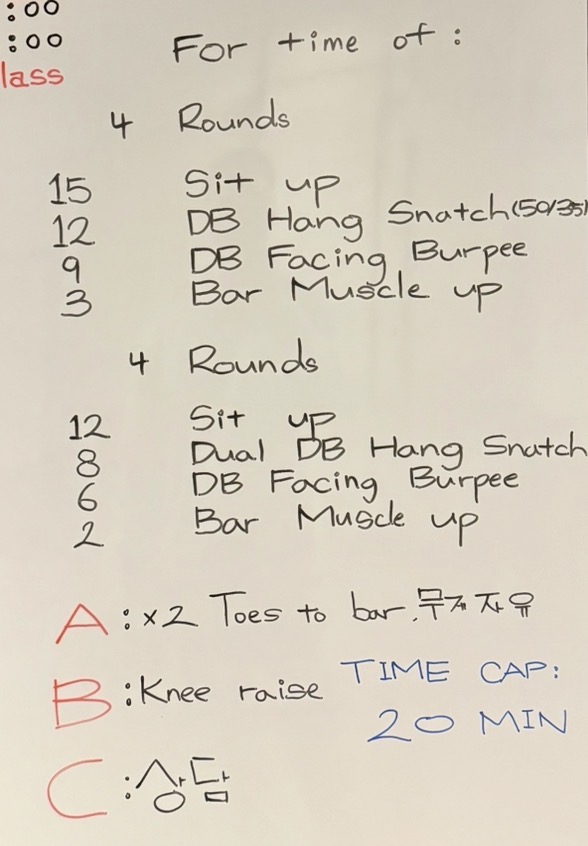 :00
:00
lass
For time of :
4 Rounds
15 Sit up
12 DB Hang Snatch (50/35)
9 DB Facing Burpee
3 Bar Muscle up
4 Rounds
12 Sit up
8 Dual DB Hang Snatch
6 DB Facing Burpee
2 Bar Muscle up
A : x2 Toes to bar. 무게 자유
B : Knee raise
TIME CAP:
20 MIN
C : 상담